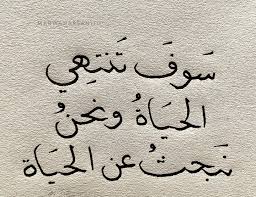 سَوفَ تَنتَهِي
الحَيَاةُ ونحنُ
نَبحثُ عن الحَيَاة